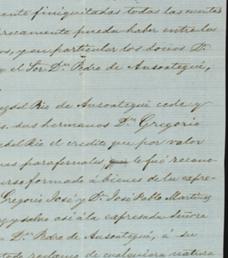 ante finiquitadas todas las cuentas
procamente pueda haber entre los
s, y en particular los dones Dn
y el Sor Dn Pedro de Ansoategui,
del Rio de Ansoategui cede y
s, sus hermanos Dn Gregorio
del Rio el credito que por valor
nes parafernales, le fué recono
curso formado á bienes de la expre
Gregorio José y Dn José Pablo Martinez
y y salvo así á la expresada Señora
Dn Pedro de Ansoategui, á su
reclamo de cualquiera natura